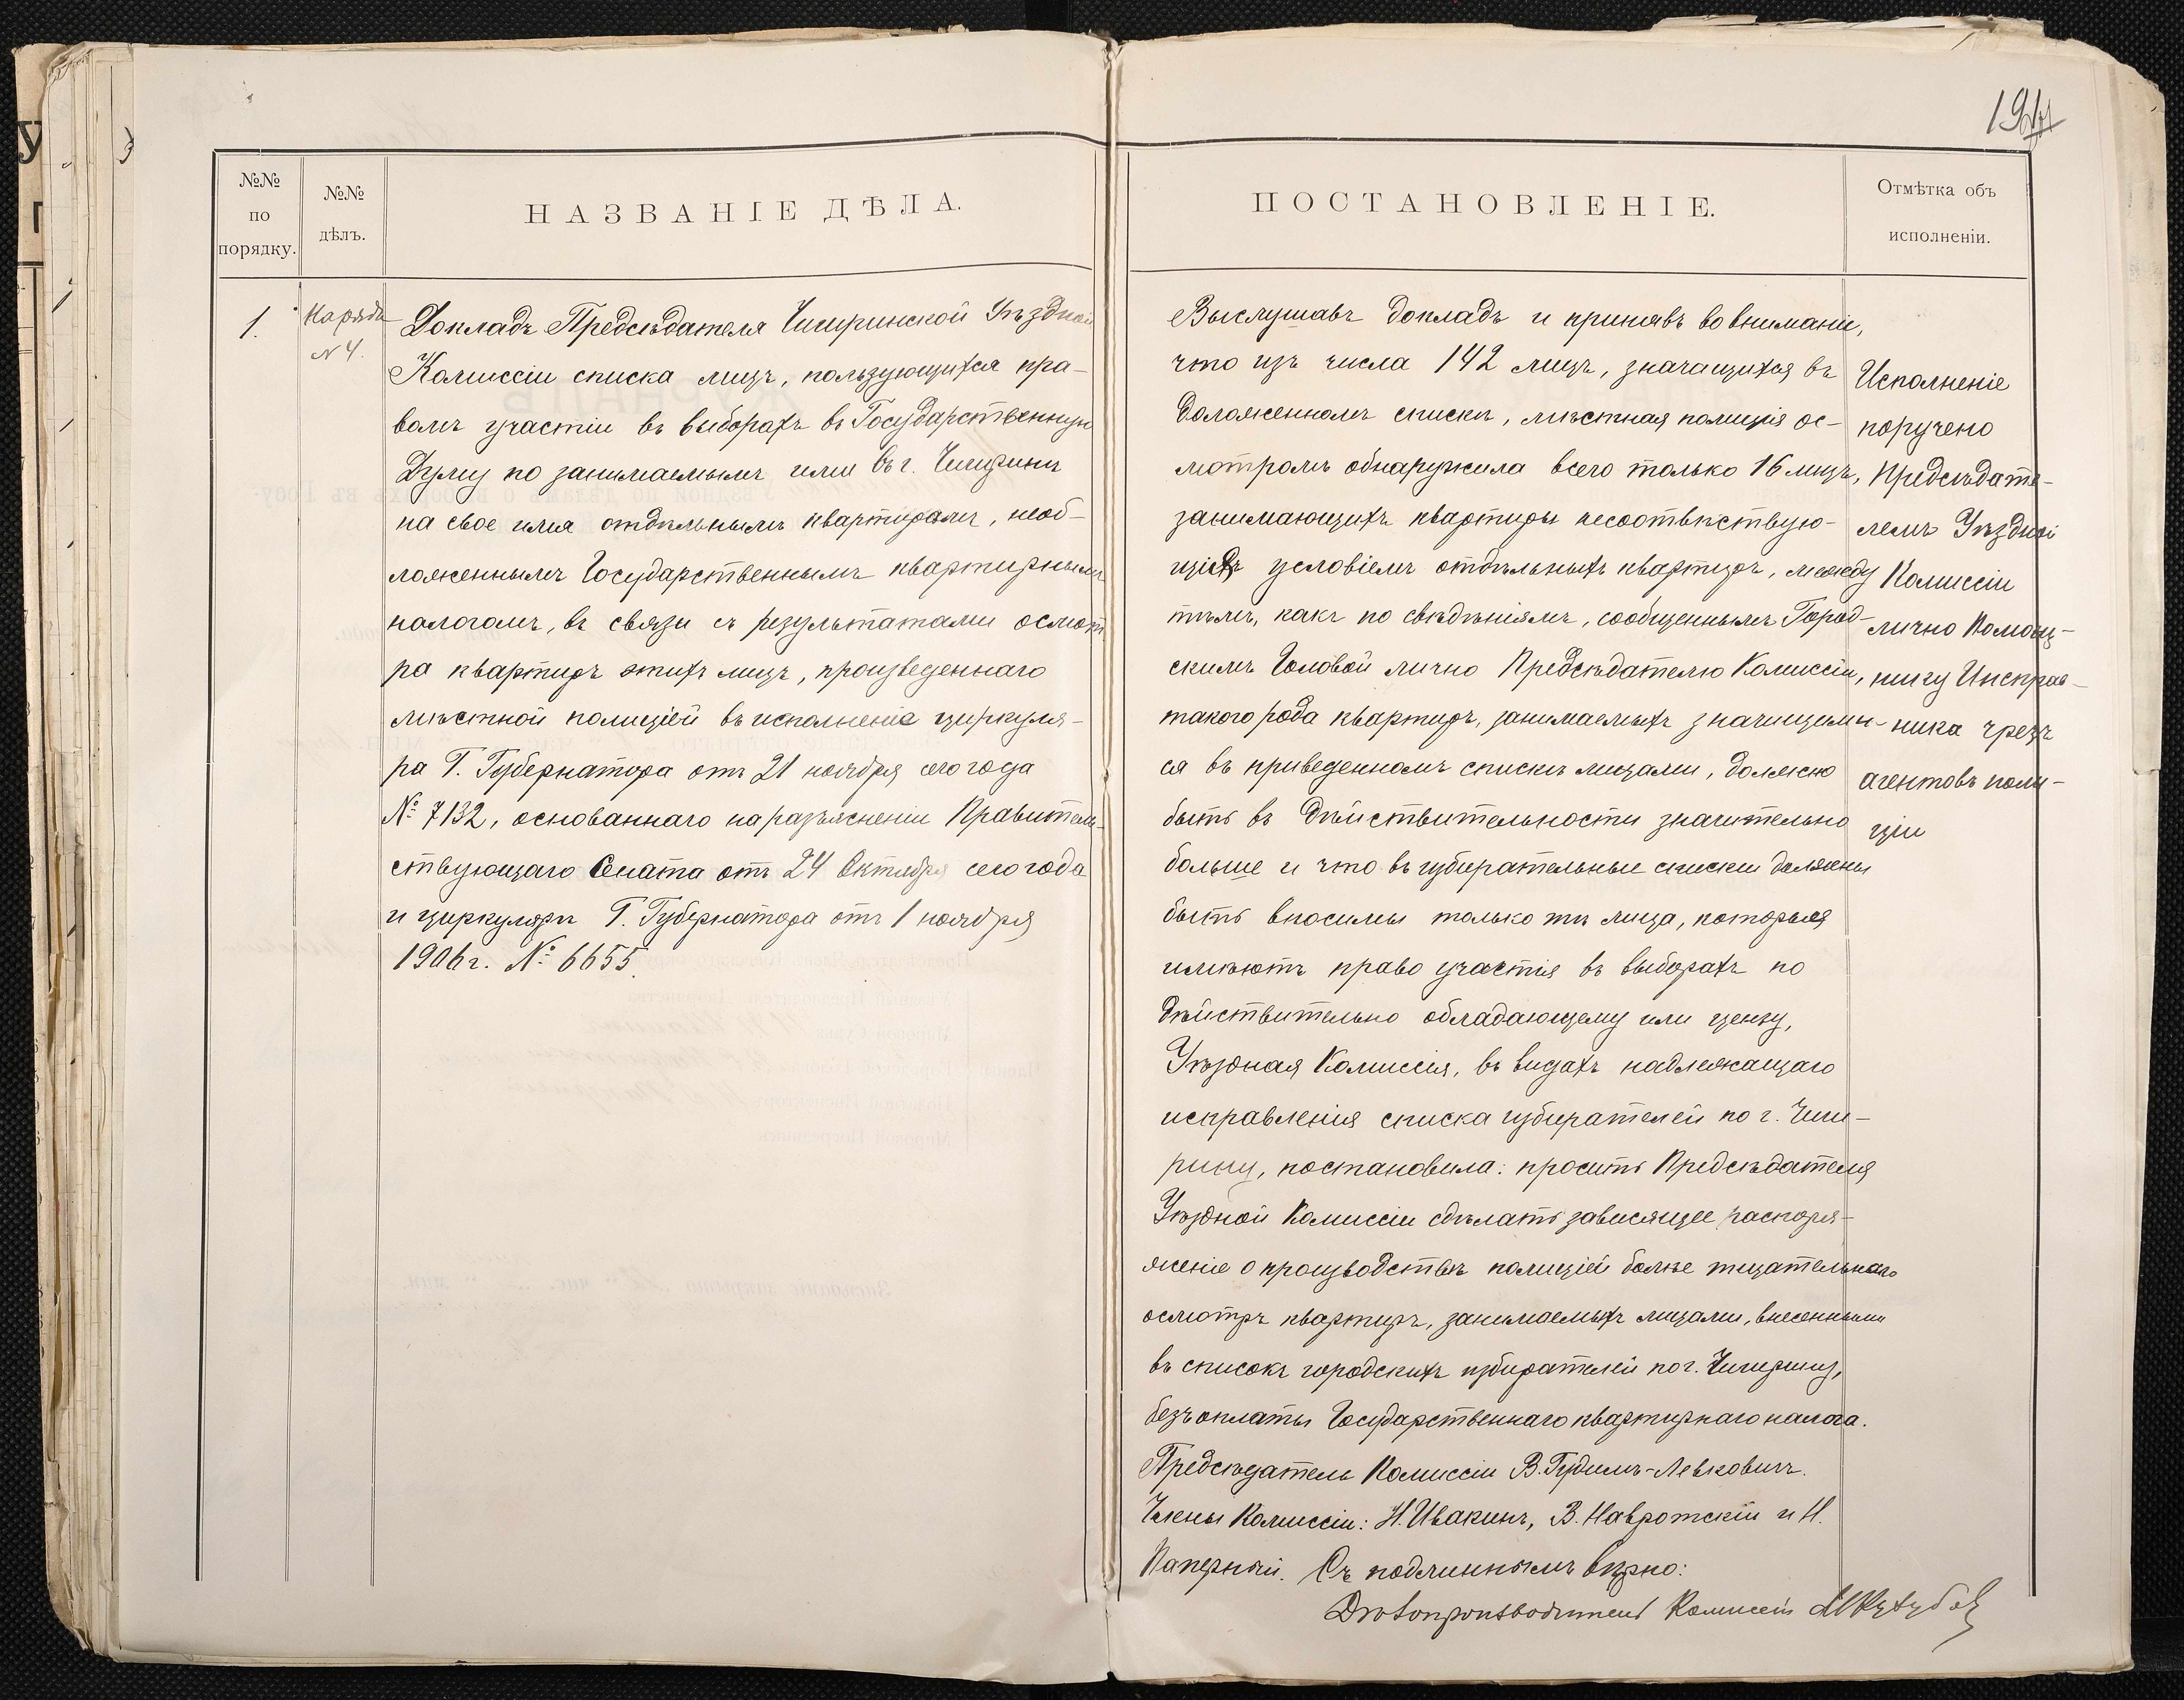 194
№№
по
порядку.
№№
дѣлъ.
НАЗВАНІЕ ДѢЛА.
1.
Наряда
№ 4.
Докладъ Предсѣдателя Чигиринской Уѣздной
Комиссіи списка лицъ, пользующихся пра-
вомъ участія въ выборахъ въ Государственную
Думу по занимаемымъ ими въ г. Чигиринѣ
на свое имя отдѣльнымъ квартирамъ, необ-
ложеннымъ Государственнымъ квартирнымъ
налогомъ, въ связи съ результатами осмот
ра квартиръ этихъ лицъ, произведеннаго
мѣстной полиціей въ исполненіе циркуля-
ра Г. Губернатора отъ 21 ноября сего года
№ 7132, основаннаго на разъясненіи Правитель-
ствующаго Сената отъ 24 Октября сего года
и циркуляра Г. Губернатора отъ 1 ноября
1906 г. № 6655.
ПОСТАНОВЛЕНІЕ.
Выслушавъ докладъ и принявъ во вниманіе,
что изъ числа 142 лицъ, значащихся въ
доложенномъ спискѣ, мѣстная полиція ос-
мотромъ обнаружила всего только 16 лицъ,
занимающихъ квартиры несоотвѣтствую-
щія условіемъ отдѣльныхъ квартиръ, между
тѣмъ, какъ по свѣдѣніямъ, сообщеннымъ Город-
скимъ Головой лично Предсѣдателю Комиссіи,
такого рода квартиръ, занимаемыхъ значащими-
ся въ приведенномъ спискѣ лицами, должно
быть въ дѣйствительности значительно
больше и что въ избирательные списки должны
быть вносимы только тѣ лица, которыя
имѣютъ право участія въ выборахъ по
дѣйствительно обладающему ими цензу,
Уѣздная Комиссія, въ видахъ надлежащаго
исправленія списка избирателей по г. Чиги-
рину, постановила: просить Предсѣдателя
Уѣздной Комиссіи сдѣлать зависящее распоря-
женіе о производствѣ полиціей болѣе тщательнаго
осмотра квартиръ, занимаемыхъ лицами, внесенными
въ списокъ городскихъ избирателей по г. Чигирину,
безъ оплаты Государственнаго квартирнаго налога.
Предсѣдатель Комиссіи В. Гудимъ-Левковичъ.
Члены Комиссіи: Н. Ивакинъ, В. Навротскій и Н.
Паперный. Съ подлиннымъ вѣрно:
Дѣлопроизводитель Комиссіи
Отмѣтка объ
исполненіи.
Исполненіе
поручено
Предсѣдате-
лемъ Уѣздной
Комиссіи
лично Помощ-
нику Исправ-
ника чрезъ
агентовъ поли-
ціи